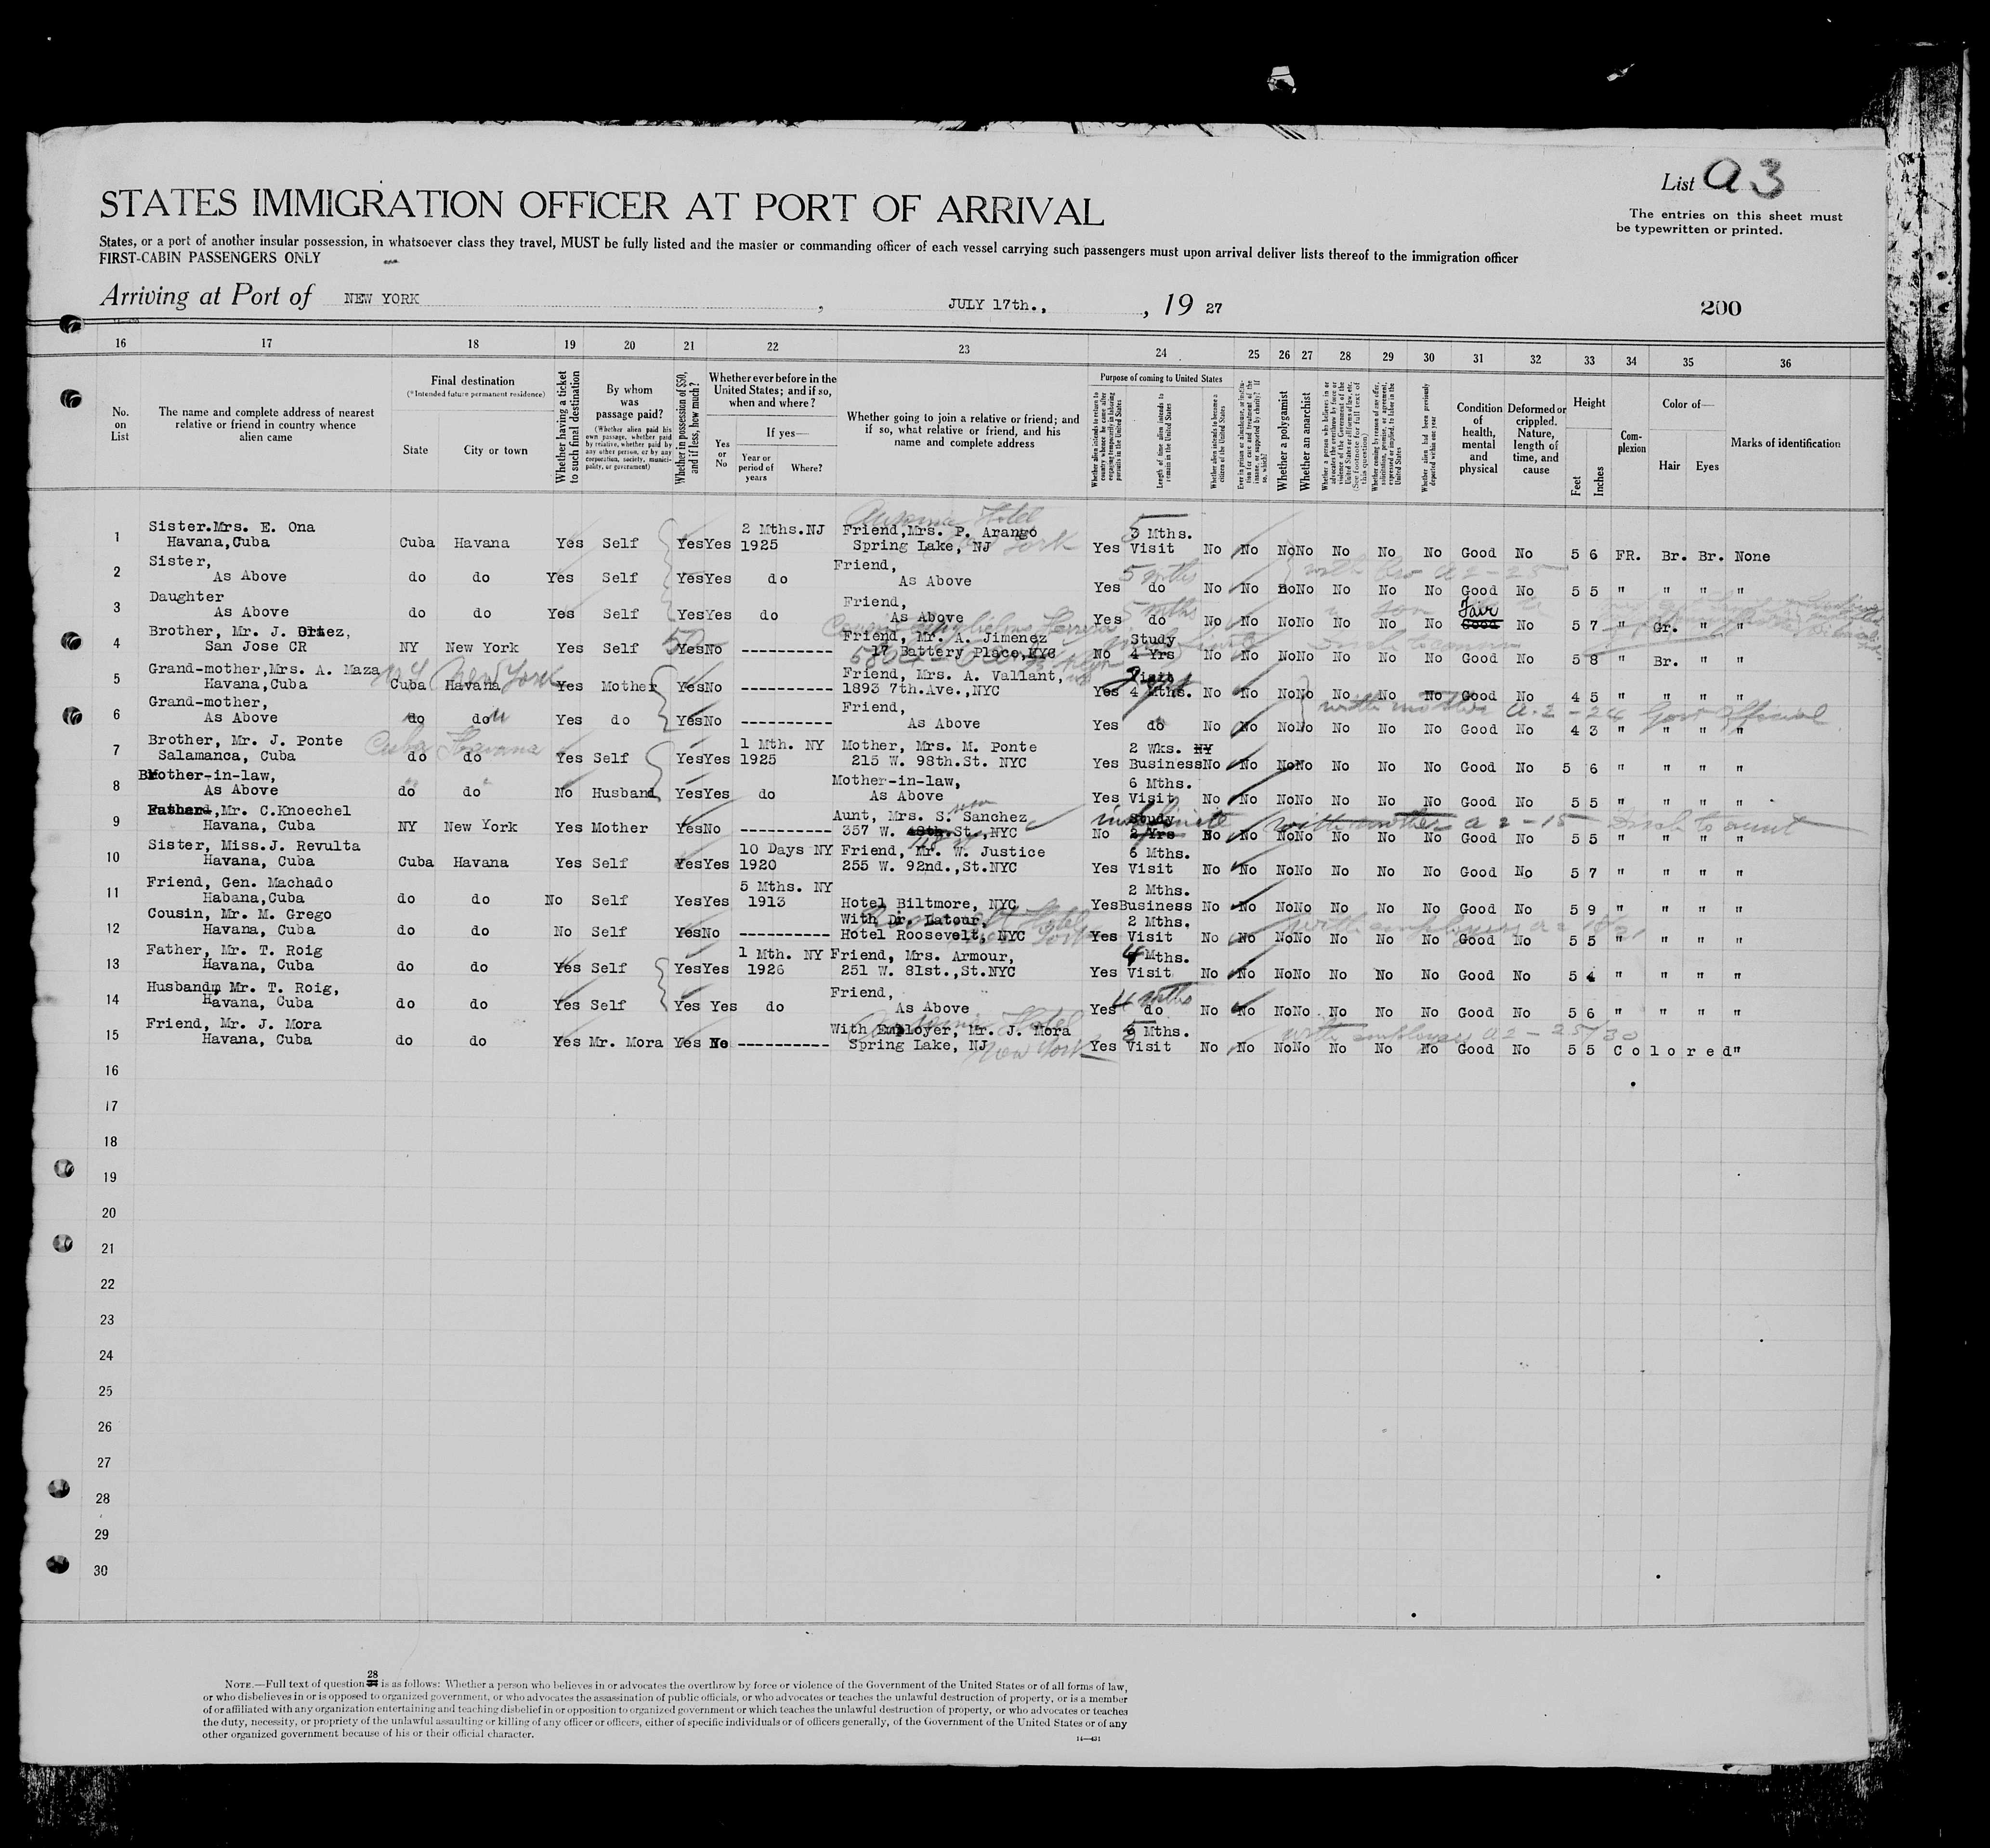 List a3
STATES IMMIGRATION OFFICER AT PORT OF ARRIVAL
The entries on this sheet must
be typewritten or printed.
States, or a port of another insular possession, in whatsoever class they travel, MUST be fully listed and the master or commanding officer of each vessel carrying such passengers must upon arrival deliver lists thereof to the immigration officer
FIRST-CABIN PASSENGERS ONLY
Arriving at Port of NEW YORK , JULY 17th., , 19 27
200
16 17 18 19 20 21 22 23 24 25 26 27 28 29 30 31 32 33 34 35 36
No. on List
The name and complete address of nearest relative or friend in country whence alien came
Final destination (*Intended future permanent residence)
State City or town
Whether having a ticket to such final destination
By whom was passage paid?
(Whether alien paid his own passage, whether paid by relative, whether paid by any other person, or by any corporation, society, municipality, or government)
Whether in possession of $50, and if less, how much?
Whether ever before in the United States; and if so, when and where?
Yes or No
If yes—
Year or period of years
Where?
Whether going to join a relative or friend; and if so, what relative or friend, and his name and complete address
Purpose of coming to United States
Whether alien intends to return to country whence he came after engaging temporarily in laboring pursuits in the United States
Length of time alien intends to remain in the United States
Whether alien intends to become a citizen of the United States
Whether a polygamist
Whether an anarchist
Whether alien had been previously deported within one year
Condition of health, mental and physical
Deformed or crippled. Nature, length of time, and cause
Height
Feet Inches
Complexion
Color of—
Hair Eyes
Marks of identification
1 Sister.Mrs. E. Ona 2 Mths.NJ Friend,Mrs. P. Arango 3 Mths.
Havana,Cuba Cuba Havana Yes Self Yes Yes 1925 Spring Lake, NJ Yes Visit No No No No No No No Good No 5 6 FR. Br. Br. None
2 Sister, Friend, 5 mths
As Above do do Yes Self Yes Yes do As Above Yes do No No No No No No No Good No 5 5 " " " "
3 Daughter Friend, 5 mths Fair
As Above do do Yes Self Yes Yes do As Above Yes do No No No No No No No Good No 5 7 " Gr. " "
4 Brother, Mr. J. Friend, Mr. A. Jimenez Study
San Jose CR NY New York Yes Self 50 Yes No ---------- 17 Battery Place,NYC No 4 Yrs No No No No No No No Good No 5 8 " Br. " "
5 Grand-mother,Mrs. A. Maza Friend, Mrs. A. Vallant, Visit
Havana,Cuba Cuba Havana New York Yes Mother Yes No ---------- 1893 7th.Ave.,NYC Yes 4 Mths. No No No No No No No Good No 4 5 " " " "
6 Grand-mother, Friend, with mother a-2-24 Gov official
As Above do do Yes do Yes No ---------- As Above Yes do No No No No No No No Good No 4 3 " " " "
7 Brother, Mr. J. Ponte Cuba Havana 1 Mth. NY Mother, Mrs. M. Ponte 2 Wks. NY
Salamanca, Cuba do do Yes Self Yes Yes 1925 215 W. 98th.St. NYC Yes Business No No No No No No No Good No 5 6 " " " "
8 Mother-in-law, Mother-in-law, 6 Mths.
As Above do do No Husband Yes Yes do As Above Yes Visit No No No No No No No Good No 5 5 " " " "
9 Father,Mr. C.Knoechel Aunt, Mrs. S. Sanchez indefinite Study with mother a 2-15
Havana, Cuba NY New York Yes Mother Yes No ---------- 357 W. St.,NYC No 2 Yrs No No No No No No No Good No 5 5 " " " "
10 Sister, Miss.J. Revulta 10 Days NY Friend, Mr. W. Justice 6 Mths.
Havana, Cuba Cuba Havana Yes Self Yes Yes 1920 255 W. 92nd.,St.NYC Yes Visit No No No No No No No Good No 5 7 " " " "
11 Friend, Gen. Machado 5 Mths. NY 2 Mths.
Habana,Cuba do do No Self Yes Yes 1913 Hotel Biltmore, NYC Yes Business No No No No No No No Good No 5 9 " " " "
12 Cousin, Mr. M. Grego With Dr. Latour, 2 Mths.
Havana, Cuba do do No Self Yes No ---------- Hotel Roosevelt, NYC Yes Visit No No No No No No No Good No 5 5 " " " "
13 Father, Mr. T. Roig 1 Mth. NY Friend, Mrs. Armour, 4 Mths.
Havana, Cuba do do Yes Self Yes Yes 1926 251 W. 81st.,St.NYC Yes Visit No No No No No No No Good No 5 4 " " " "
14 Husband, Mr. T. Roig, Friend, 4 mths
Havana, Cuba do do Yes Self Yes Yes do As Above Yes do No No No No No No No Good No 5 6 " " " "
15 Friend, Mr. J. Mora With Employer, Mr. J. Mora 5 Mths.
Havana, Cuba do do Yes Mr. Mora Yes No ---------- Spring Lake, NJ New York Yes Visit No No No No No No No Good No 5 5 Colored "
16
17
18
19
20
21
22
23
24
25
26
27
28
29
30
28
NOTE.—Full text of question is as follows: Whether a person who believes in or advocates the overthrow by force or violence of the Government of the United States or of all forms of law,
or who disbelieves in or is opposed to organized government, or who advocates the assassination of public officials, or who advocates or teaches the unlawful destruction of property, or is a member
of or affiliated with any organization entertaining and teaching disbelief in or opposition to organized government or which teaches the unlawful destruction of property, or who advocates or teaches
the duty, necessity, or propriety of the unlawful assaulting or killing of any officer or officers, either of specific individuals or of officers generally, of the Government of the United States or of any
other organized government because of his or their official character.
14—431